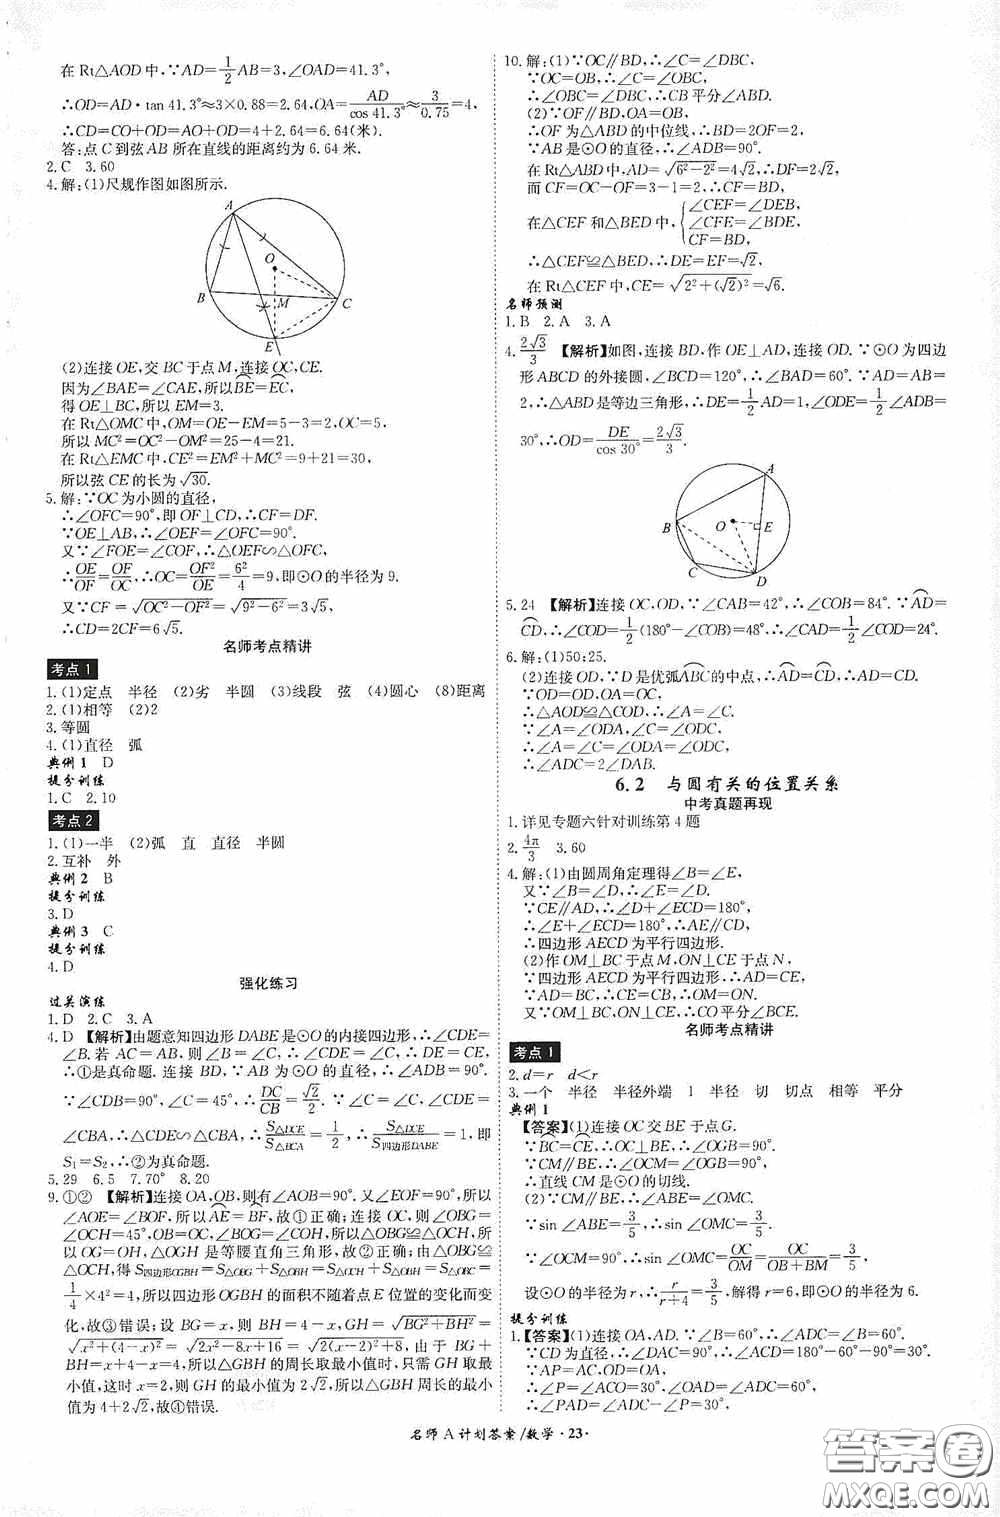 在Rt△AOD中,∵AD=1/2AB=3,∠OAD=41.3°,
∴OD=AD·tan 41.3°≈3×0.88=2.64,OA=AD/cos 41.3°≈3/0.75=4,
∴CD=CO+OD=AO+OD=4+2.64=6.64(米).
答:点C到弦AB所在直线的距离约为6.64米.
2.C 3.60
4.解:(1)尺规作图如图所示.
A
O
B
M
C
E
(2)连接OE,交BC于点M,连接OC,CE.
因为∠BAE=∠CAE,所以BE=EC,
得OE⊥BC,所以EM=3.
在Rt△OMC中,OM=OE-EM=5-3=2,OC=5,
所以MC²=OC²-OM²=25-4=21.
在Rt△EMC中,CE²=EM²+MC²=9+21=30,
所以弦CE的长为√30.
5.解:∵OC为小圆的直径,
∴∠OFC=90°,即OF⊥CD,∴CF=DF.
∵OE⊥AB,∴∠OEF=∠OFC=90°.
又∵∠FOE=∠COF,∴△OEF∽△OFC,
∴OE/OF=OF/OC,∴OC=OF²/OE=6²/4=9,即⊙O的半径为9.
又∵CF=√(OC²-OF²)=√(9²-6²)=3√5,
∴CD=2CF=6√5.
名师考点精讲
考点1
1.(1)定点 半径 (2)劣 半圆 (3)线段 弦 (4)圆心 (8)距离
2.(1)相等 (2)2
3.等圆
4.(1)直径 弧
典例1 D
提分训练
1.C 2.10
考点2
1.(1)一半 (2)弧 直 直径 半圆
2.互补 外
典例2 B
提分训练
3.D
典例3 C
提分训练
4.D
强化练习
过关演练
1.D 2.C 3.A
4.D 【解析】由题意知四边形DABE是⊙O的内接四边形,∴∠CDE=
∠B.若AC=AB,则∠B=∠C,∴∠CDE=∠C,∴DE=CE,
∴①是真命题.连接BD,∵AB为⊙O的直径,∴∠ADB=90°,
∵∠CDB=90°,∠C=45°,∴DC/CB=√2/2.∵∠C=∠C,∠CDE=
∠CBA,∴△CDE∽△CBA,∴S△DCE/S△BCA=1/2,∴S△DCE/S四边形DABE=1,即
S₁=S₂,∴②为真命题.
5.29 6.5 7.70° 8.20
9.①② 【解析】连接OA,OB,则有∠AOB=90°.又∠EOF=90°,所以
∠AOE=∠BOF,所以AE=BF,故①正确;连接OC,则∠OBG=
∠OCH=45°,OB=OC,∠BOG=∠COH,所以△OBG≌△OCH,所
以OG=OH,△OGH是等腰直角三角形,故②正确;由△OBG≌
△OCH,得S四边形OGBH=S△OBG+S△OBH=S△OCH+S△OBH=S△OBC=
1/4×4²=4,所以四边形OGBH的面积不随着点E位置的变化而变
化,故③错误;设BG=x,则BH=4-x,GH=√(BG²+BH²)=
√(x²+(4-x)²)=√(2x²-8x+16)=√(2(x-2)²+8),由于BG+
BH=x+4-x=4,所以△GBH的周长取最小值时,只需GH取最
小值,这时x=2,则GH的最小值为2√2,所以△GBH周长的最小
值为4+2√2,故④错误.
10.解:(1)∵OC∥BD,∴∠C=∠DBC,
∵OC=OB,∴∠C=∠OBC,
∴∠OBC=∠DBC,∴CB平分∠ABD.
(2)∵OF∥BD,OA=OB,
∴OF为△ABD的中位线,∴BD=2OF=2,
∵AB是⊙O的直径,∴∠ADB=90°.
在Rt△ABD中,AD=√(6²-2²)=4√2,∴DF=2√2,
而CF=OC-OF=3-1=2,∴CF=BD,
在△CEF和△BED中,{∠CEF=∠DEB, ∠CFE=∠BDE, CF=BD,
∴△CEF≌△BED,∴DE=EF=√2,
在Rt△CEF中,CE=√(2²+(√2)²)=√6.
名师预测
1.B 2.A 3.A
4.2√3/3 【解析】如图,连接BD,作OE⊥AD,连接OD.∵⊙O为四边
形ABCD的外接圆,∠BCD=120°,∴∠BAD=60°.∵AD=AB=
2,∴△ABD是等边三角形,∴DE=1/2AD=1,∠ODE=1/2∠ADB=
30°,∴OD=DE/cos 30°=2√3/3.
A
B
O
E
C
D
5.24 【解析】连接OC,OD,∵∠CAB=42°,∴∠COB=84°.∵AD=
CD,∴∠COD=1/2(180°-∠COB)=48°,∴∠CAD=1/2∠COD=24°.
6.解:(1)50;25.
(2)连接OD,∵D是优弧ABC的中点,∴AD=CD,∴AD=CD.
∵OD=OD,OA=OC,
∴△AOD≌△COD,∴∠A=∠C.
∵∠A=∠ODA,∠C=∠ODC,
∴∠A=∠C=∠ODA=∠ODC,
∴∠ADC=2∠DAB.
6.2 与圆有关的位置关系
中考真题再现
1.详见专题六针对训练第4题
2.4π/3 3.60
4.解:(1)由圆周角定理得∠B=∠E,
又∵∠B=∠D,∴∠E=∠D.
∵CE∥AD,∴∠D+∠ECD=180°,
∴∠E+∠ECD=180°,∴AE∥CD,
∴四边形AECD为平行四边形.
(2)作OM⊥BC于点M,ON⊥CE于点N,
∵四边形AECD为平行四边形,∴AD=CE,
∵AD=BC,∴CE=CB,∴OM=ON.
又∵OM⊥BC,ON⊥CE,∴CO平分∠BCE.
名师考点精讲
考点1
2.d=r d<r
3.一个 半径 半径外端 1 半径 切 切点 相等 平分
典例1
【答案】(1)连接OC交BE于点G.
∵BC=CE,∴OC⊥BE,∴∠OGB=90°.
∵CM∥BE,∴∠OCM=∠OGB=90°,
∴直线CM是⊙O的切线.
(2)∵CM∥BE,∴∠ABE=∠OMC.
∵sin∠ABE=3/5,∴sin∠OMC=3/5.
∵∠OCM=90°,∴sin∠OMC=OC/OM=OC/(OB+BM)=3/5,
设⊙O的半径为r,∴r/(r+4)=3/5,解得r=6,即⊙O的半径为6.
提分训练
1.【答案】(1)连接OA,AD.∵∠B=60°,∴∠ADC=∠B=60°.
∵CD为直径,∴∠DAC=90°,∴∠ACD=180°-60°-90°=30°.
∵AP=AC,OD=OA,
∴∠P=∠ACO=30°,∠OAD=∠ADC=60°,
∴∠PAD=∠ADC-∠P=60°-30°=30°,
名师A计划答案/数学·23·
答案圈
MXQE.COM